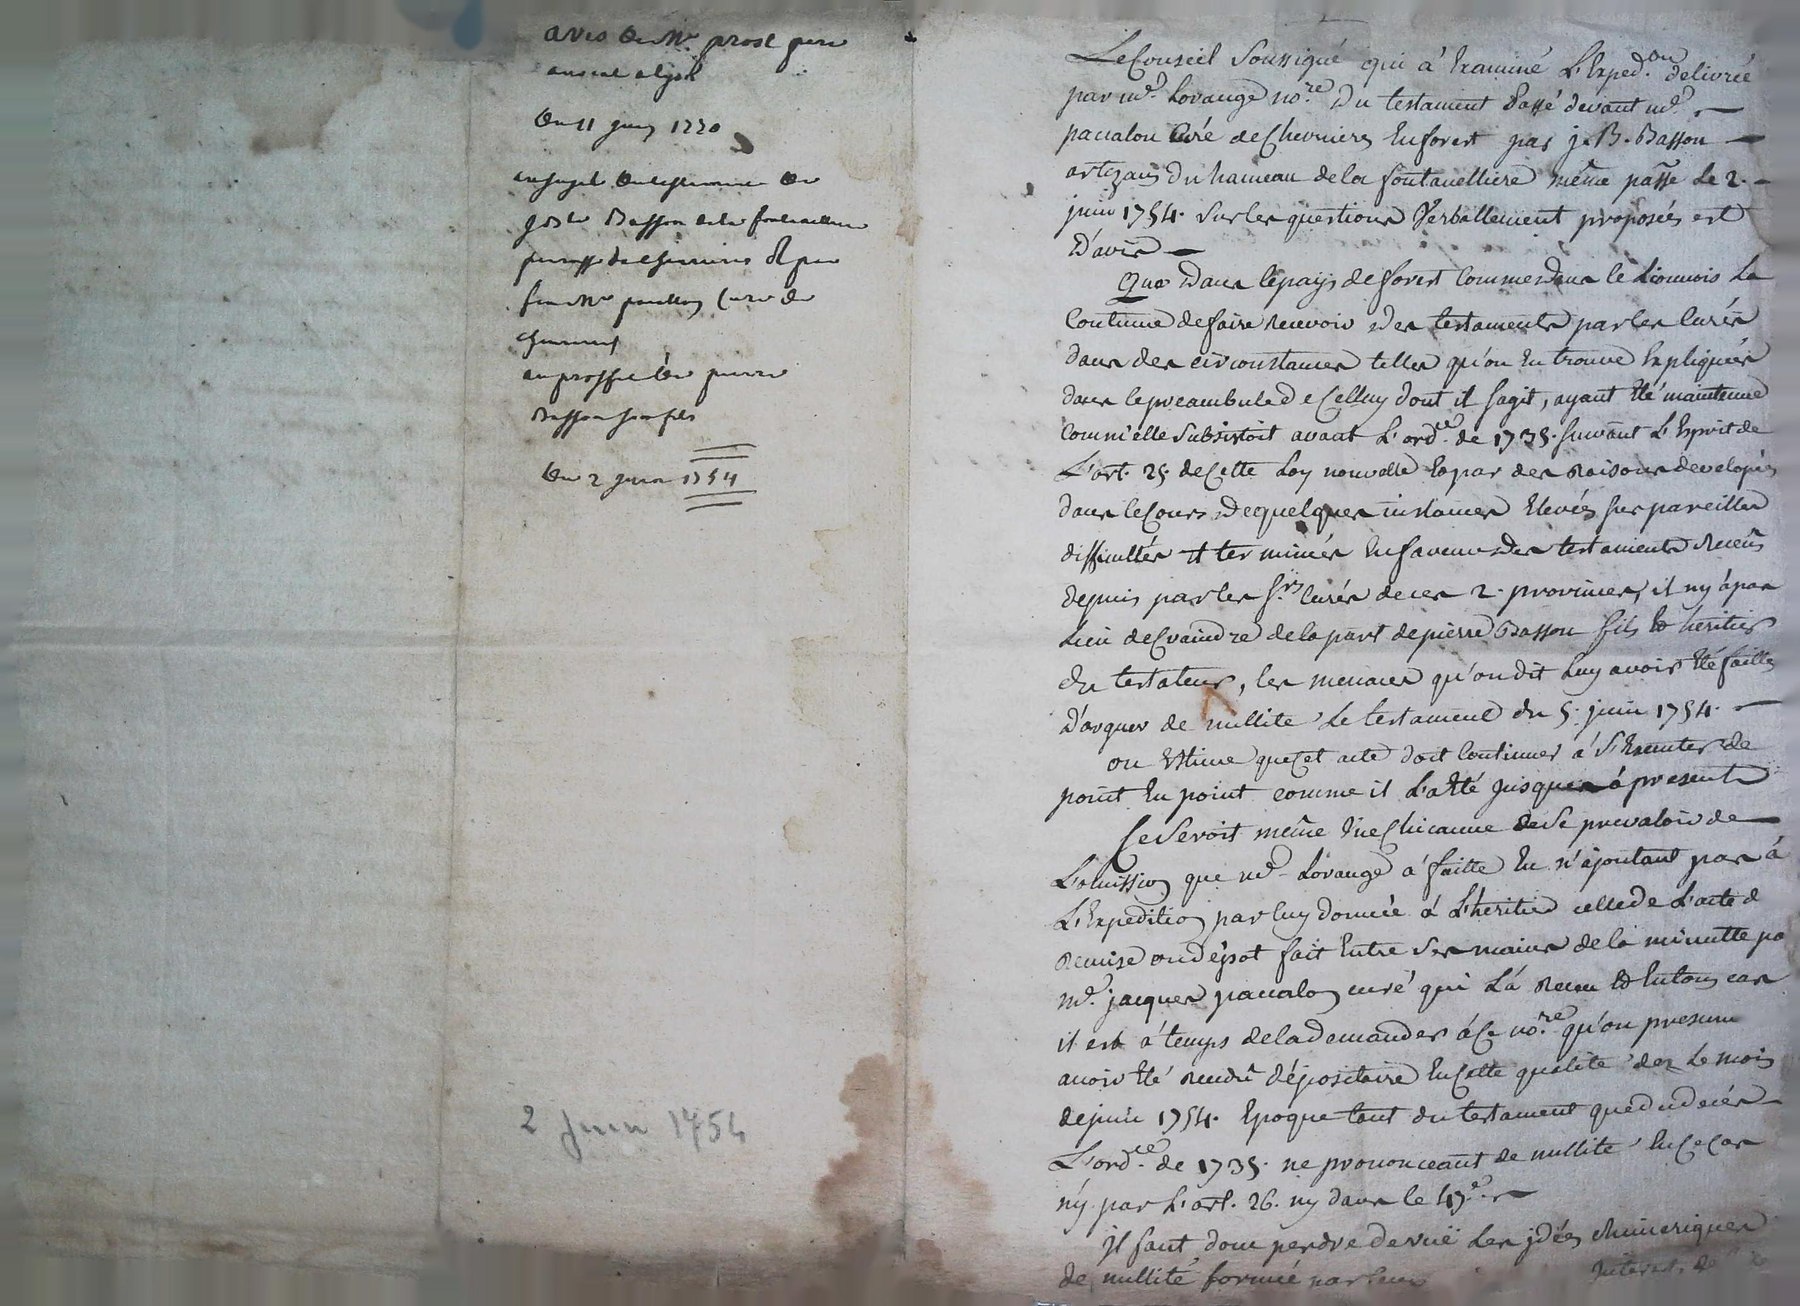 avis de Mr prost pere
avocat a lyon
Du 11 juin 1770
au sujet du testament de
jn Bte Basson de la fontanelliere
paroisse de chevrieres par
feu Mr pacallon Curé de
chevrieres
au proffit de pierre
Basson son fils
Du 2 juin 1754
2 juin 1754
Le Conseil Soussigné qui á Examiné L'Exped.on delivrée
par me. Lorange no.re du testament Passé devant me.
pacalon Curé de Chevrieres En forest par j. B. Basson
artizan du hameau de la fontanelliere même passe Le 2.
juin 1754. sur les questions Verballement proposées est
D'avis
Que Dans le pays de forest Comme dans le Lionnois La
Coutume de faire recevoir des testaments par les Curés
dans des circonstances telles qu'on En trouve Expliquées
dans le preambule de Celluy dont il sagit, ayant Eté maintenue
Comm'elle subsistoit avant L'ord.ce de 1735. suivant L'Esprit de
L'art. 25. de Cette Loy nouvelle Et par des Raisons developées
dans le Cours de quelques instances Elevées sur pareilles
difficultés Et terminées En faveur des testaments Receus
depuis par les S.rs Curés de ces 2. provinces, il ny á pas
Lieu de Craindre de la part de pierre Basson fils Et heritier
du testateur, les menaces qu'on dit Luy avoir Eté faittes
D'arguer de nullité Le testament du 5. juin 1754.
on Estime que Cet acte doit Continuer á S'Executer de
point En point comme il L'a Eté jusques á present
Ce Seroit même Une Chicanne de Se prevaloir de
L'omission que me. Lorange á faitte En n'ajoutant pas á
L'Expedition par luy donnée á L'heritier celle de L'acte d
Remise ou dépot fait Entre Ses mains de la minutte pa
me. jacques pacalon curé qui L'á Receu Et En tous cas
il est á temps de la demander á Ce no.re qu'on presume
avoir Eté Rendu dépositaire En Cette qualité dez Le mois
de juin 1754. Epoque tant du testament que du décés
L'ord.ce de 1735. ne prononceant de nullité En Ce Cas
ny par L'art. 26. ny dans le 47.e
jl faut donc perdre de vuë Les jdées chimeriques
de nullité formée par